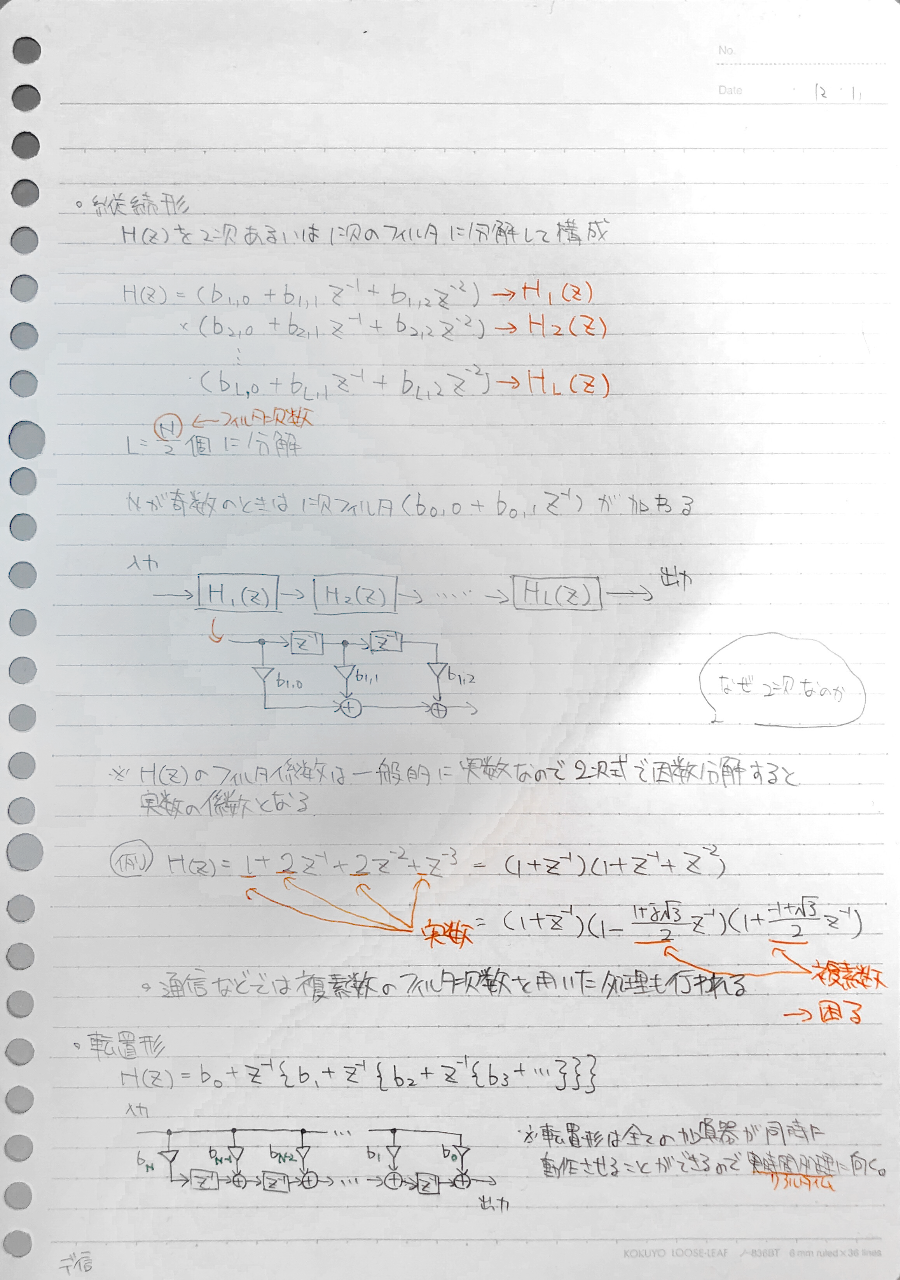 No.
Date 12・11
・縦続形
H(z)を2次あるいは1次のフィルタに分解して構成
H(z) = (b1,0 + b1,1 z⁻¹ + b1,2 z⁻²) → H1(z)
× (b2,0 + b2,1 z⁻¹ + b2,2 z⁻²) → H2(z)
⋮
(bL,0 + bL,1 z⁻¹ + bL,2 z⁻²) → HL(z)
←フィルタ次数
L = N/2 個に分解
Nが奇数のときは1次フィルタ(b0,0 + b0,1 z⁻¹)が加わる
入力 → H1(z) → H2(z) → ‥‥ → HL(z) → 出力
z⁻¹ z⁻¹
b1,0 b1,1 b1,2
+ +
なぜ2次なのか
※ H(z)のフィルタ係数は一般的に実数なので2次式で因数分解すると
実数の係数となる
例) H(z) = 1 + 2z⁻¹ + 2z⁻² + z⁻³ = (1+z⁻¹)(1+z⁻¹+z⁻²)
実数 = (1+z⁻¹)(1 - (1+j√3)/2 z⁻¹)(1 + (-1+√3)/2 z⁻¹)
複素数
→ 困る
・通信などでは複素数のフィルタ次数を用いた処理も行われる
・転置形
H(z) = b0 + z⁻¹{b1 + z⁻¹{b2 + z⁻¹{b3 + …}}}
入力
…
bN bN-1 bN-2 b1 b0
z⁻¹ + z⁻¹ + … + z⁻¹ +
出力
※転置形は全ての加算器が同時に
動作させることができるので実時間処理に向く。
リアルタイム
デ信
KOKUYO LOOSE-LEAF ノ-836BT 6mm ruled×36 lines